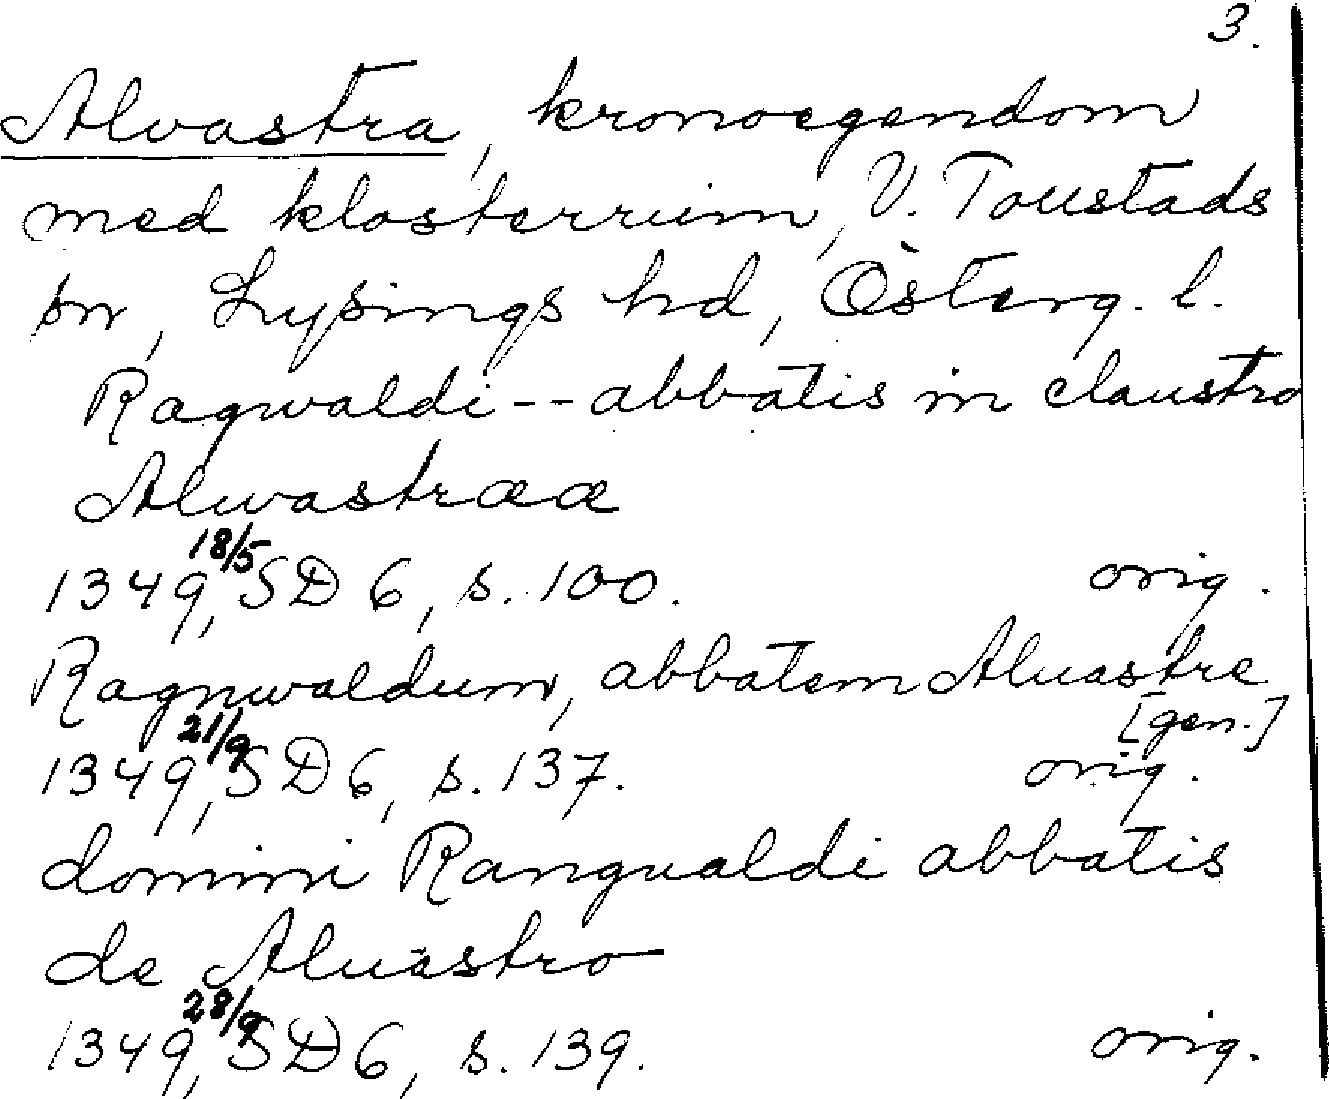 3.
Alvastra, kronoegendom
med klosterruin, V. Toustads
sn, Lysings hd, Österg. l.
Ragwaldi -- abbatis in claustro
Alwastraæ
1349 18/5, SD 6, s. 100. orig.
Ragnwaldum, abbatem Aluastre
[gen.]
1349 21/9, SD 6, s. 137. orig.
domini Rangualdi abbatis
de Aluastro
1349 28/9, SD 6, s. 139. orig.